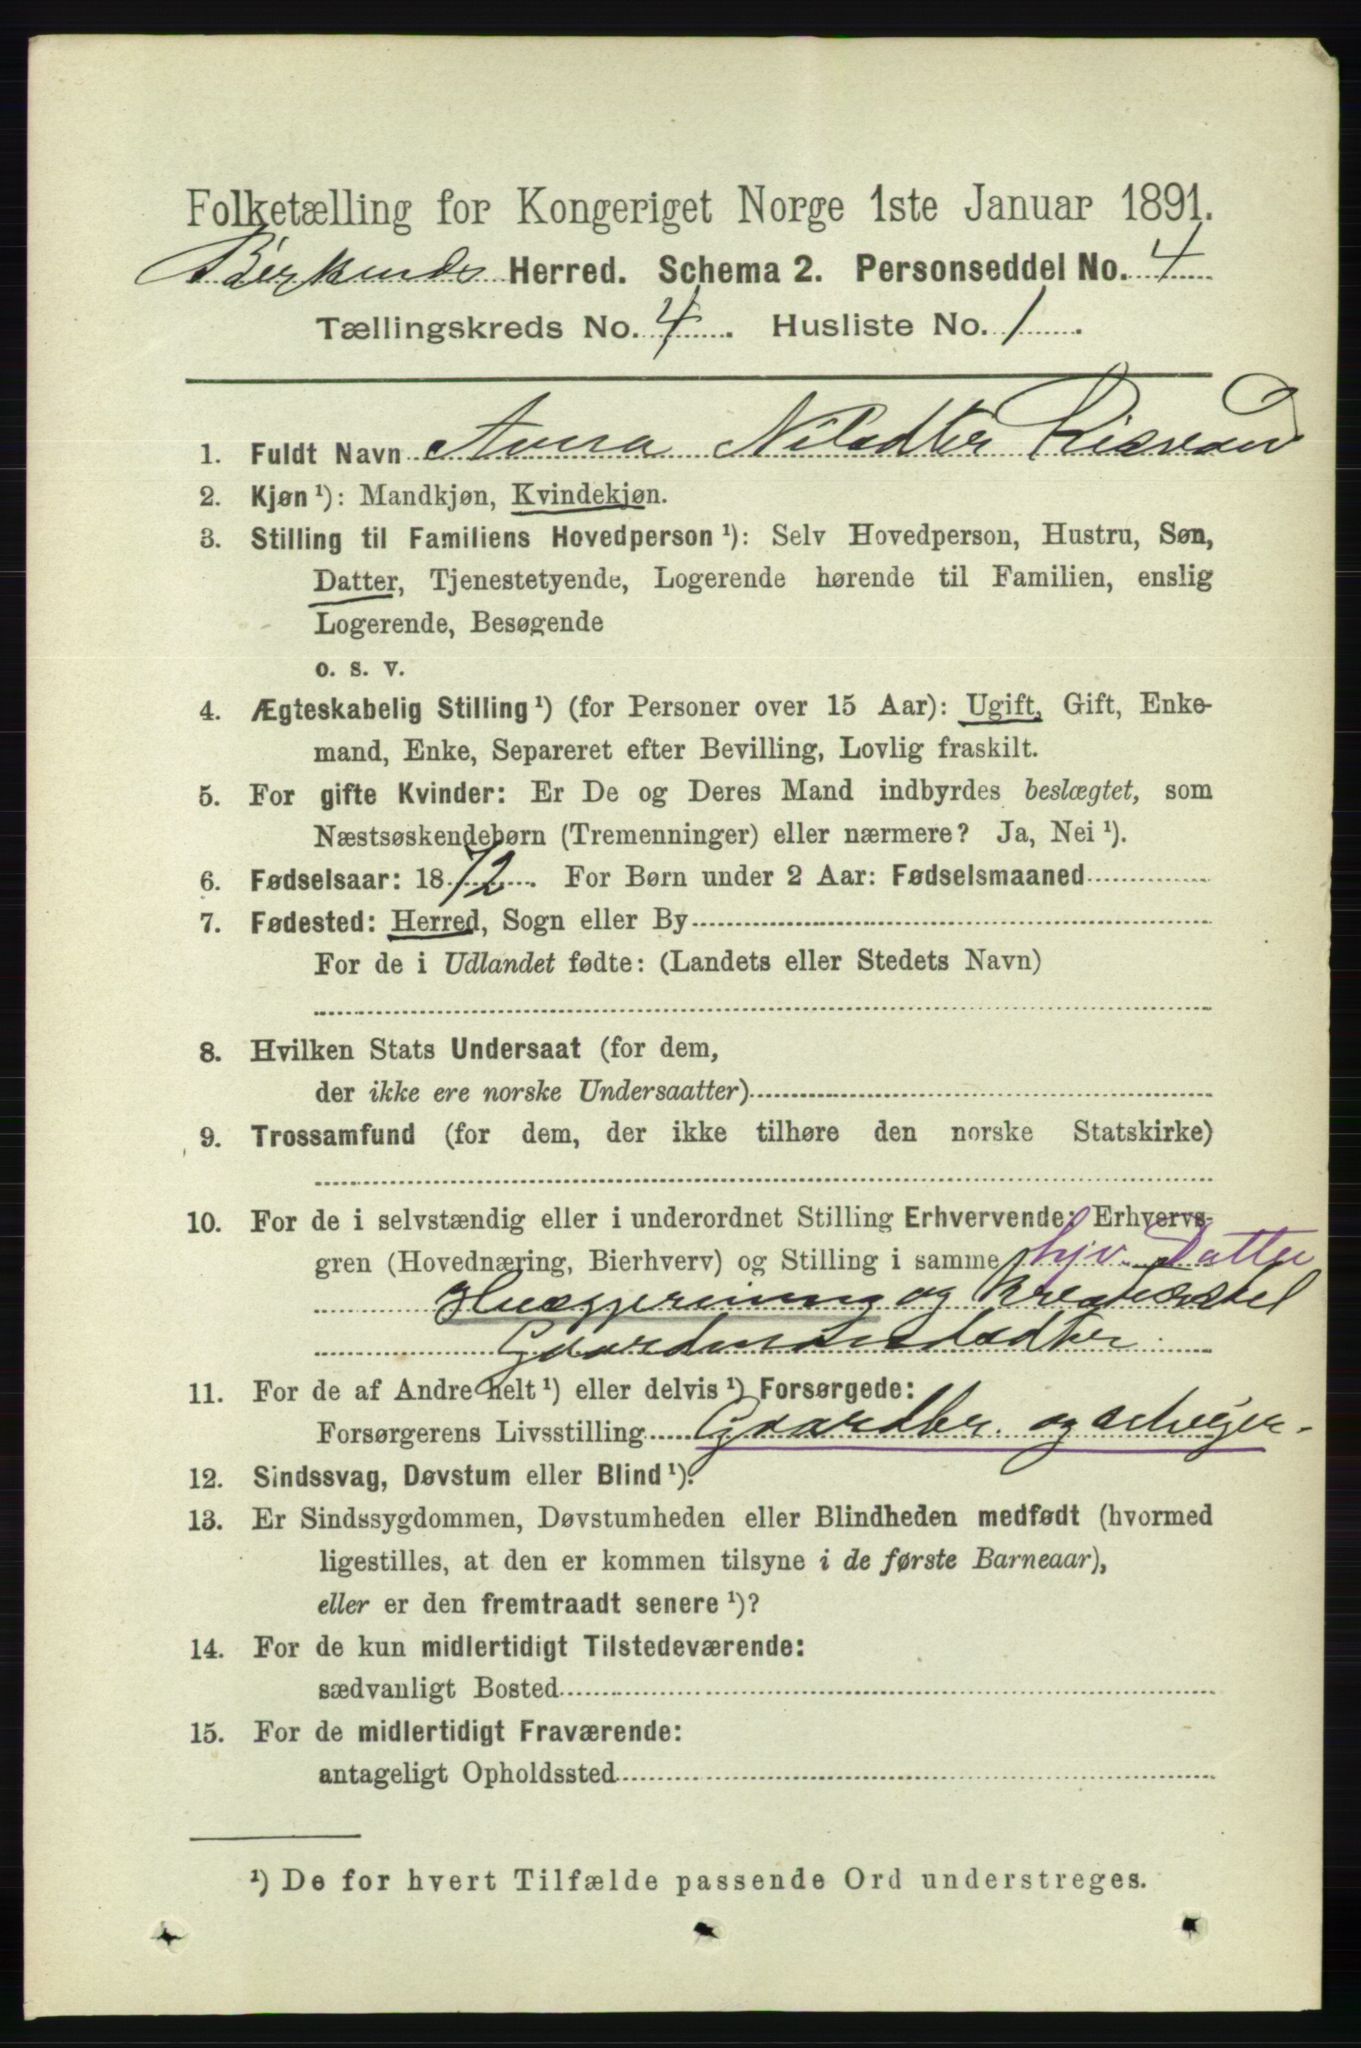 Folketælling for Kongeriget Norge 1ste Januar 1891.
Herred. Schema 2. Personseddel No. 4
Tællingskreds No. 4. Husliste No. 1.
1. Fuldt Navn Anna Nilsdtr
2. Kjøn ¹): Mandkjøn, Kvindekjøn.
3. Stilling til Familiens Hovedperson ¹): Selv Hovedperson, Hustru, Søn,
Datter, Tjenestetyende, Logerende hørende til Familien, enslig
Logerende, Besøgende
o. s. v.
4. Ægteskabelig Stilling ¹) (for Personer over 15 Aar): Ugift, Gift, Enke-
mand, Enke, Separeret efter Bevilling, Lovlig fraskilt.
5. For gifte Kvinder: Er De og Deres Mand indbyrdes beslægtet, som
Næstsøskendebørn (Tremenninger) eller nærmere? Ja, Nei ¹).
6. Fødselsaar: 1872. For Børn under 2 Aar: Fødselsmaaned
7. Fødested: Herred, Sogn eller By
For de i Udlandet fødte: (Landets eller Stedets Navn)
8. Hvilken Stats Undersaat (for dem,
der ikke ere norske Undersaatter)
9. Trossamfund (for dem, der ikke tilhøre den norske Statskirke)
10. For de i selvstændig eller i underordnet Stilling Erhvervende: Erhvervs-
gren (Hovednæring, Bierhverv) og Stilling i samme hjv. Datter
Husgjerning og Kreaturstel
Gaardmandsdatter
11. For de af Andre helt ¹) eller delvis ¹) Forsørgede:
Forsørgerens Livsstilling Gaardbr. og selveier
12. Sindssvag, Døvstum eller Blind ¹).
13. Er Sindssygdommen, Døvstumheden eller Blindheden medfødt (hvormed
ligestilles, at den er kommen tilsyne i de første Barneaar),
eller er den fremtraadt senere ¹)?
14. For de kun midlertidigt Tilstedeværende:
sædvanligt Bosted
15. For de midlertidigt Fraværende:
antageligt Opholdssted
¹) De for hvert Tilfælde passende Ord understreges.